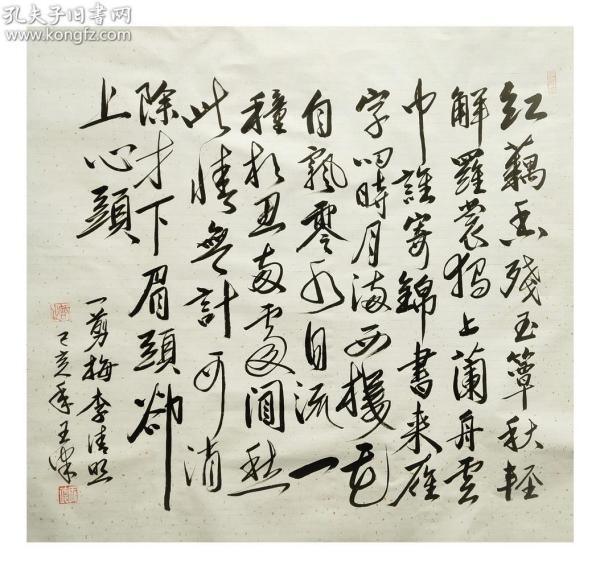 孔夫子旧书网
www.kongfz.com
紅藕香殘玉簟秋輕
解羅裳獨上蘭舟雲
中誰寄錦書来雁
字回時月滿西樓花
自飄零水自流一
種相思兩處閒愁
此情無計可消
除才下眉頭卻
上心頭
一剪梅李清照
己亥年王